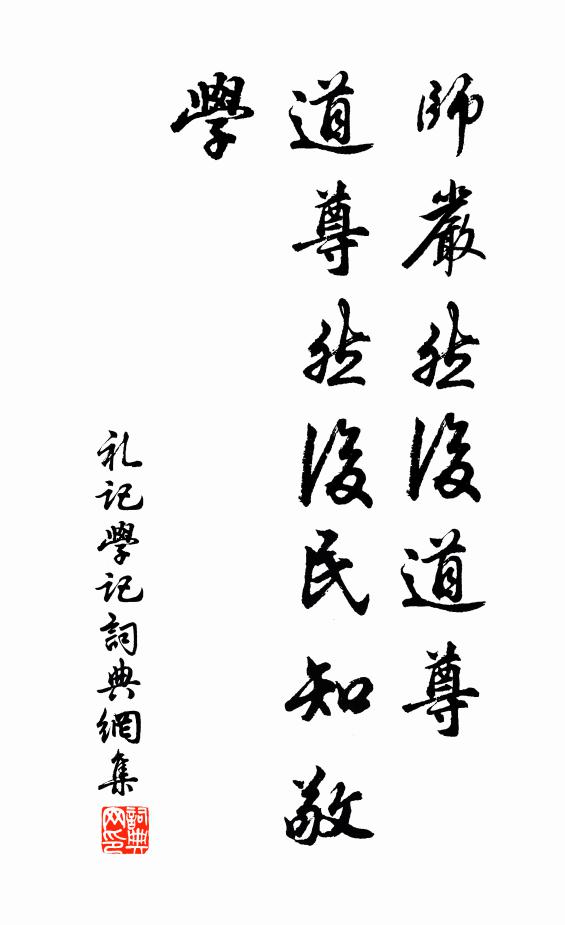 師嚴然後道尊
道尊然後民知敬
學
礼記學記詞典網集
詞典网印